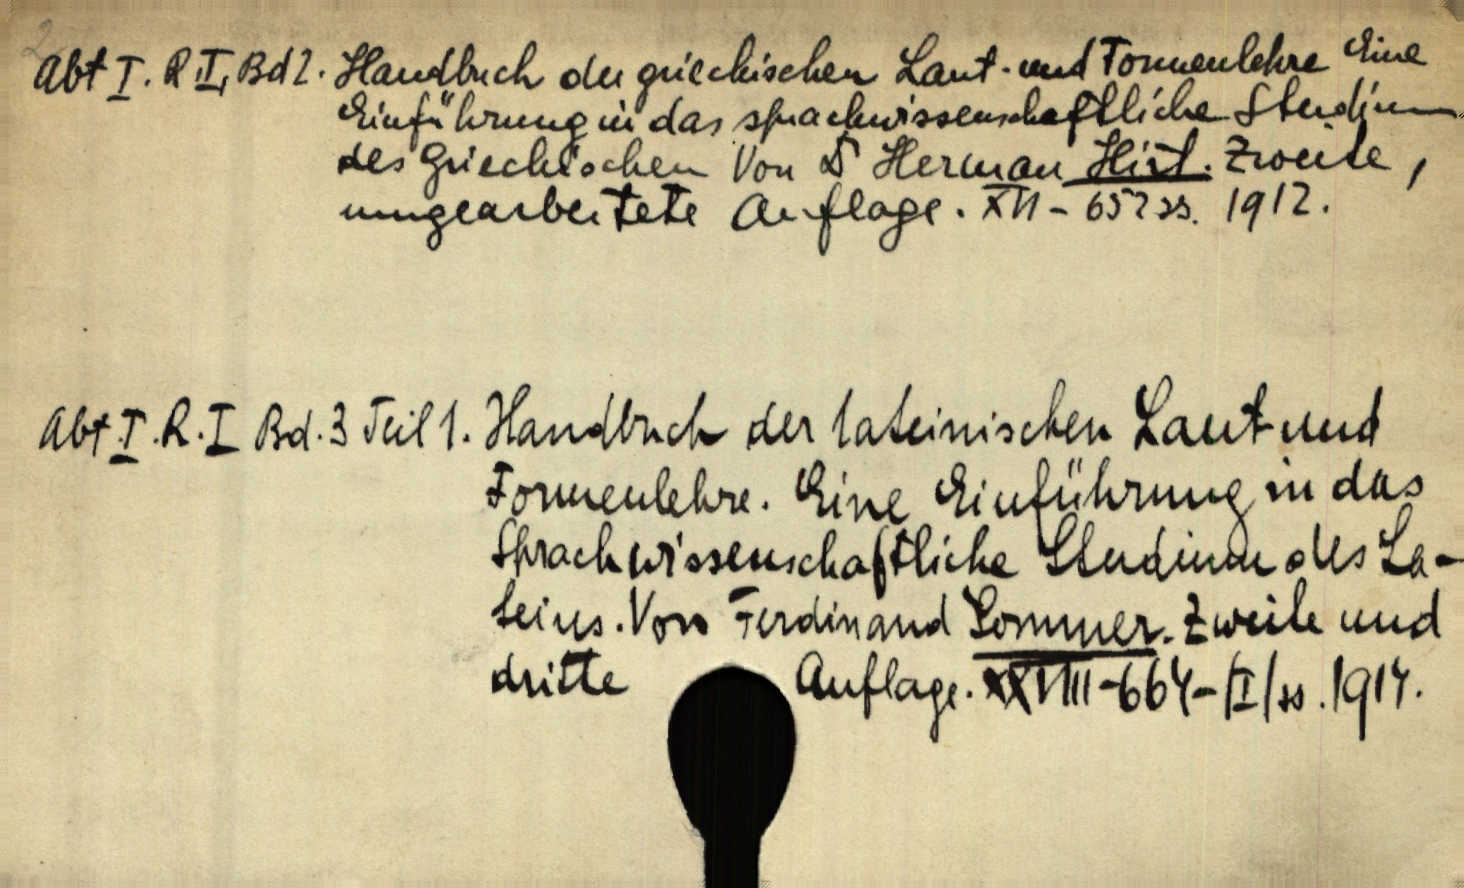 2
Abt I. R II, Bd 2. Handbuch der griechischen Laut- und Formenlehre Eine
Einführung in das sprachwissenschaftliche Studium
des Griechischen Von Dr Herman Hirt. Zweite,
umgearbeitete Auflage. XII - 652 ss. 1912.
Abt. I. R. I Bd. 3 Teil 1. Handbuch der lateinischen Laut- und
Formenlehre. Eine Einführung in das
Sprachwissenschaftliche Studium des La-
teins. Von Ferdinand Sommer. Zweite und
dritte Auflage. XXVIII - 664 - /I/ ss. 1914.